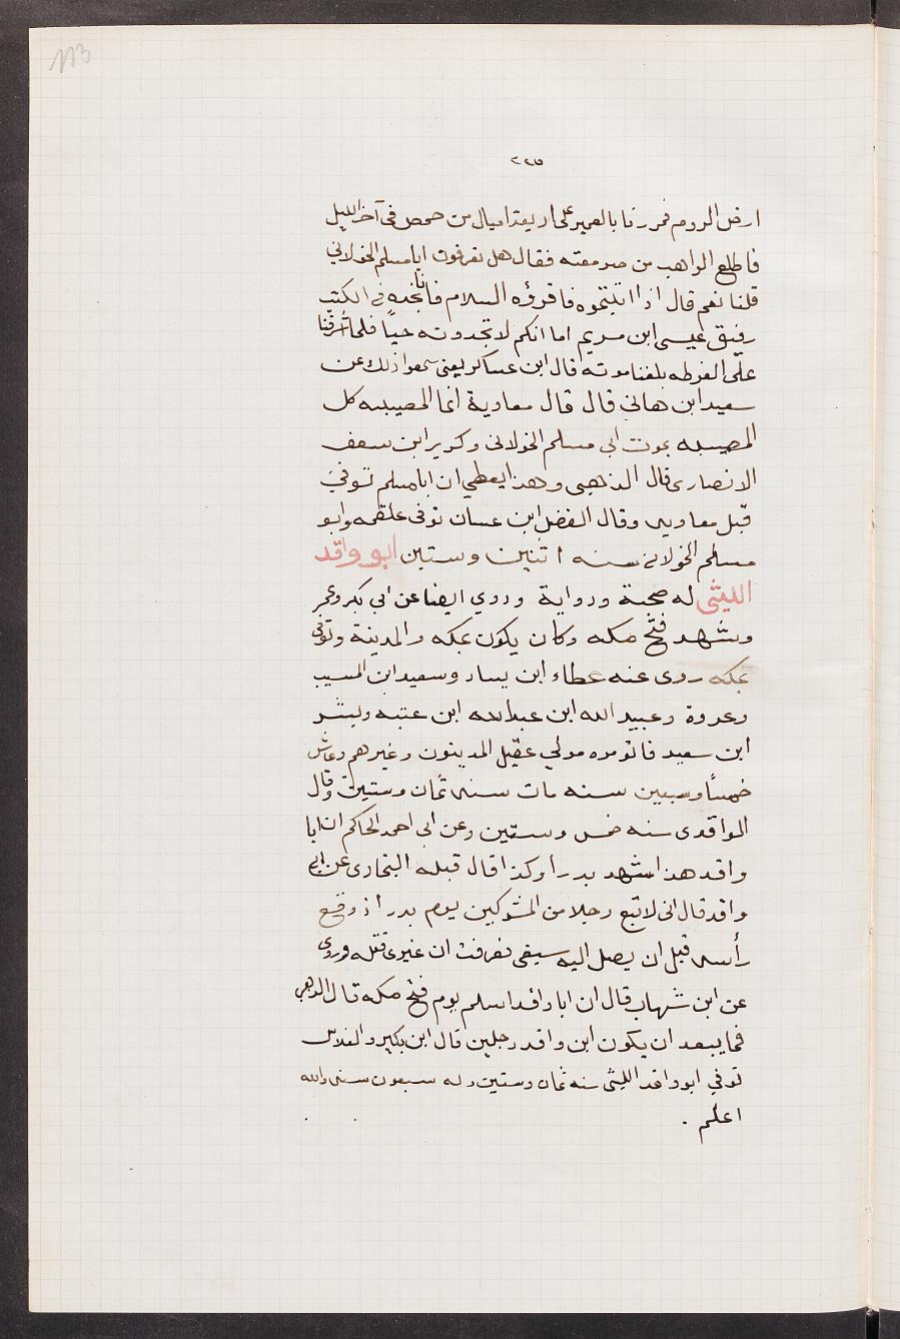 113
٢٢٥
ارض الروم فمررنا بالعمير على اربعة اميال من حمص فى آخر الليل
فاطلع الراهب من صومعته فقال هل تعرفون ابا مسلم الخولاني
قلنا نعم قال اذا اتيتموه فاقرؤه السلام فانا نجده فى الكتب
رفيق عيسى ابن مريم اما انكم لا تجدونه حياً فلما اشرفنا
على الغوطه بلغنا موته قال ابن عساكر يعنى سمعوا ذلك عن
سعيد ابن هاني قال قال معاوية انما المصيبه كل
المصيبه بموت ابي مسلم الخولانى وكريز ابن سيف
الانصارى قال الذهبى وهذا يعطي ان ابا مسلم توفى
قبل معاويه وقال المفضل ابن غسان توفى علقمه وابو
مسلم الخولانى سنه اثنين وستين ابو واقد
الليثى له صحبة ورواية وروي ايضا عن ابي بكر وعمر
وشهد فتح مكه وكان يكون بمكه والمدينة وتوفى
بمكه روى عنه عطاء ابن يسار وسعيد ابن المسيب
وعروة وعبيد الله ابن عبد الله ابن عتبه وبشر
ابن سعيد فابو مره مولي عقيل المدينون وغيرهم وعاش
خمساً وسبعين سنه مات سنه ثمان وستين وقال
الواقدى سنه خمس وستين وعن ابى احمد الحاكم ان ابا
واقد هذا شهد بدرا وكذا قال قبله البخارى عن ابي
واقد قال انى لاتبع رجلا من المشركين يوم بدر اذ وقع
رأسه قبل ان يصل اليه سيفى فعرفت ان غيرى قتله وروى
عن ابن شهاب قال ان ابا واقد اسلم يوم فتح مكه قال الذهبى
فما يبعد ان يكون ابن واقد رجلين قال ابن بكير والفلاس
توفي ابو واقد الليثى سنه ثمان وستين وله سبعون سنه والله
اعلم .